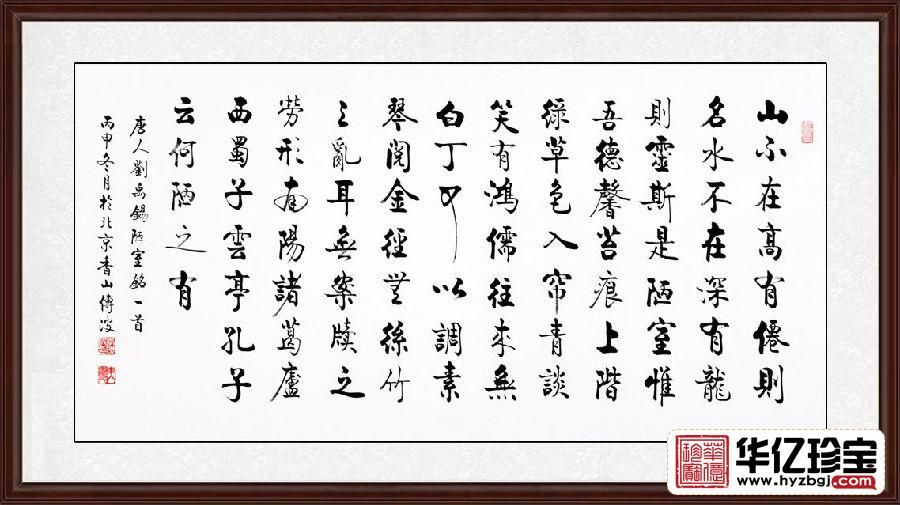 山不在高有僊則
名水不在深有龍
則靈斯是陋室惟
吾德馨苔痕上階
綠草色入帘青談
笑有鴻儒往來無
白丁可以調素
琴閱金經無絲竹
之亂耳無案牘之
勞形南陽諸葛廬
西蜀子雲亭孔子
云何陋之有
唐人劉禹錫陋室銘一首
丙申冬月於北京香山傅波
華億珍寶
华亿珍宝
www.hyzbgj.com